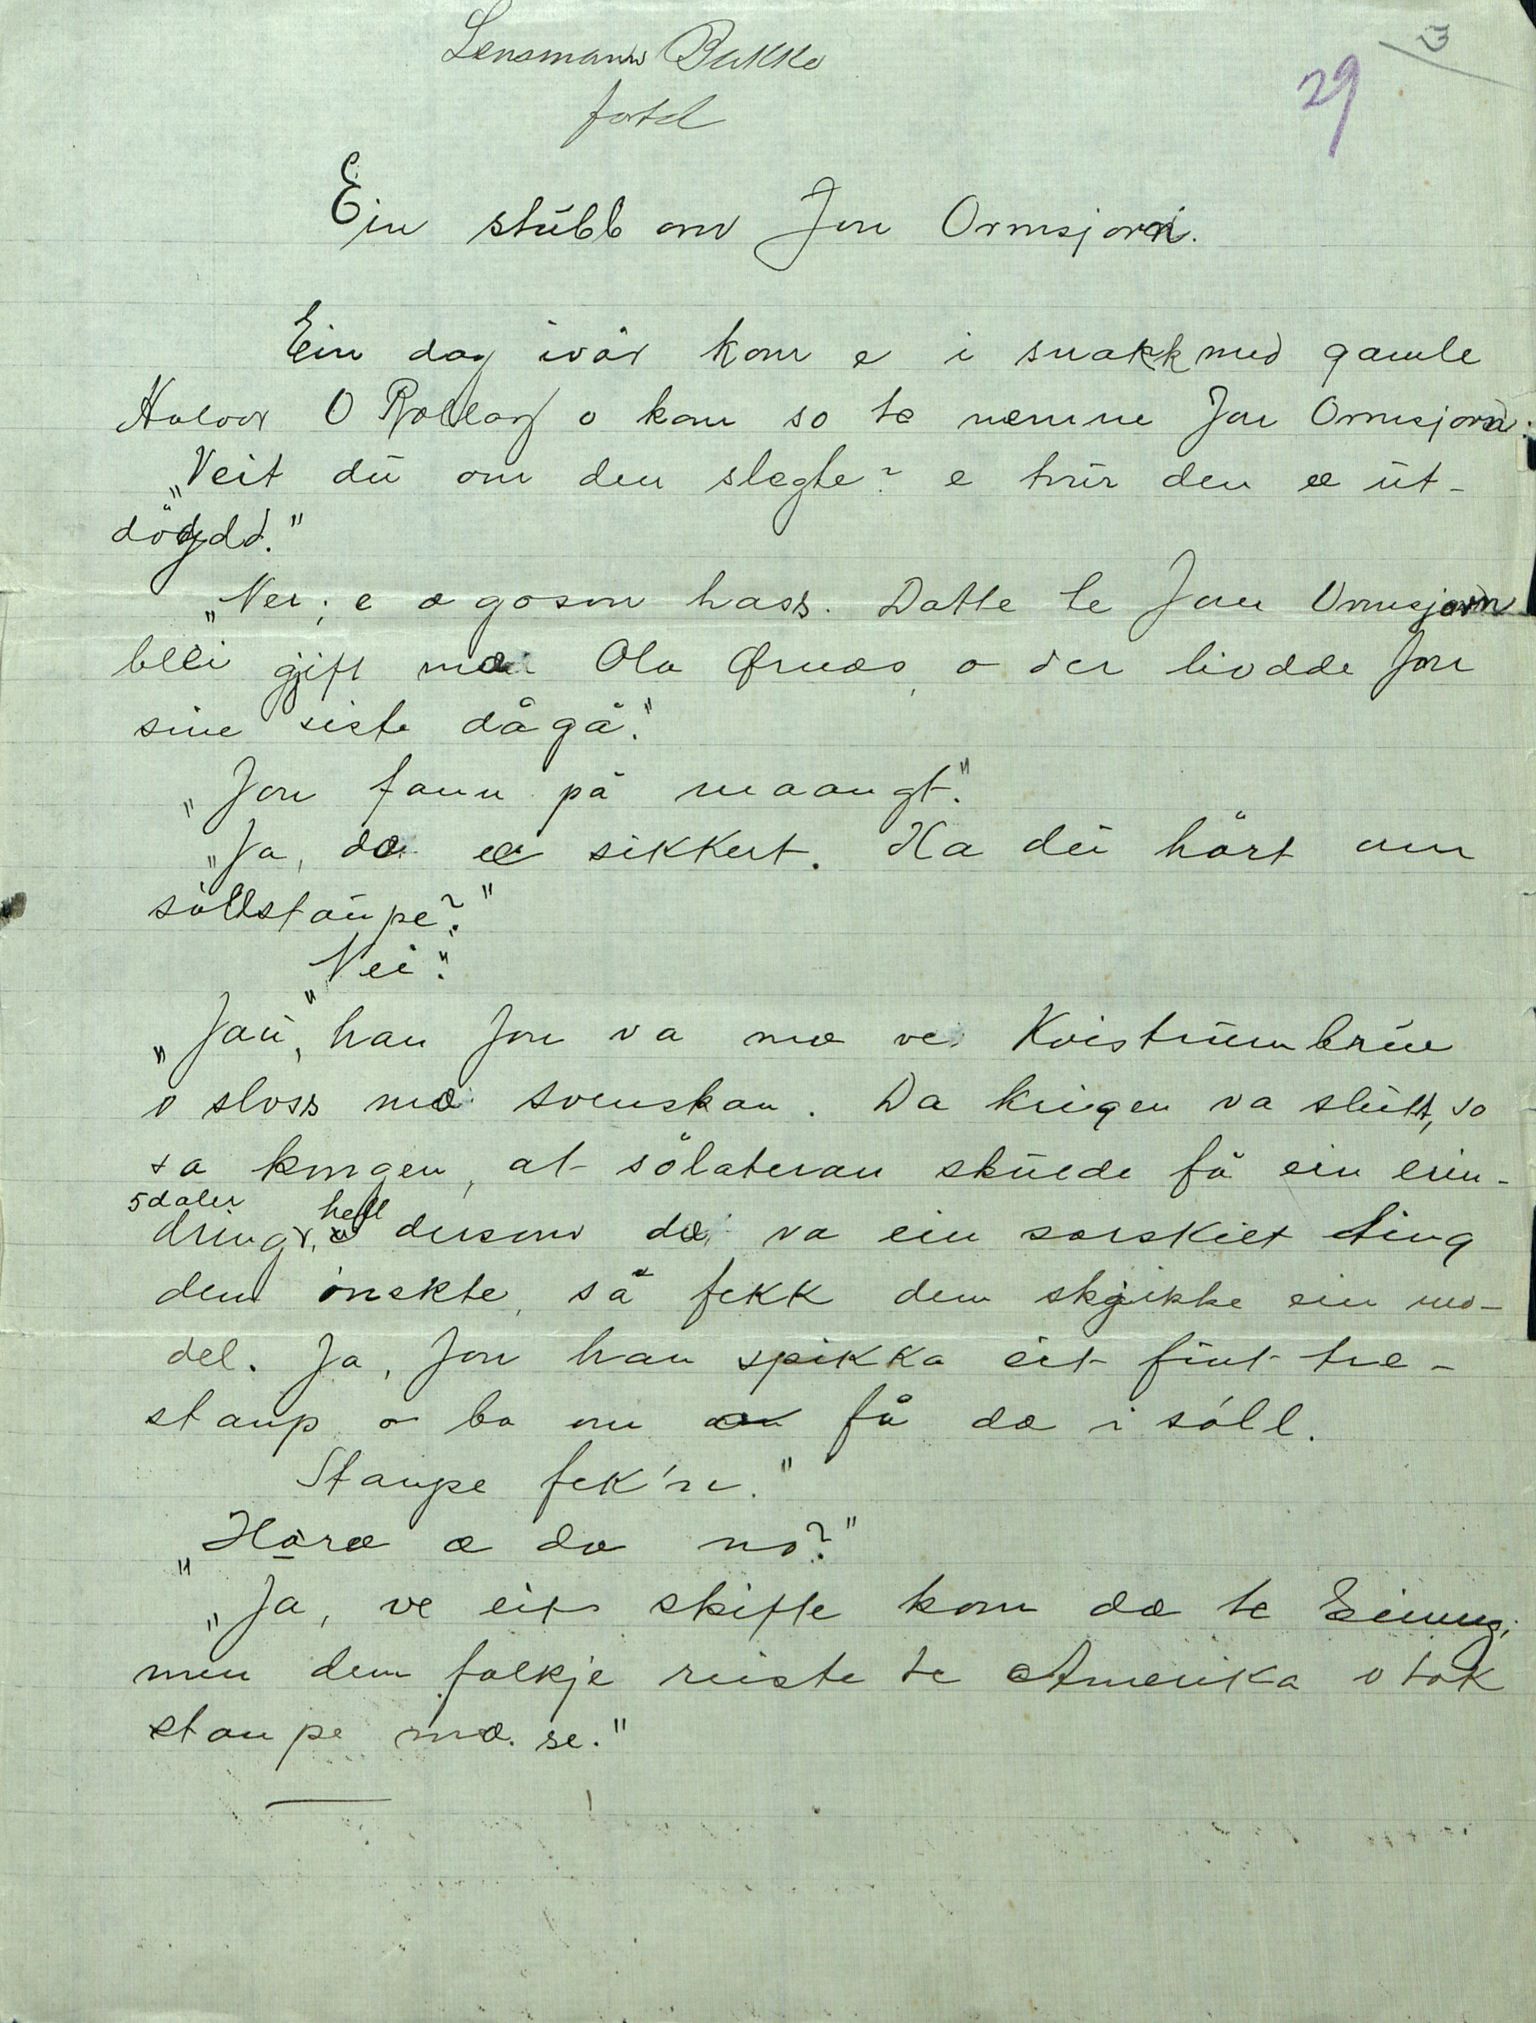 Lensmann Bakke
fortel
29
13
Ein stúbb om Jon Ormsjorn.
Ein dag ivår kom e i snakk med gamle
Halvor O o kom so te nemne Jon Ormsjorn.
„Veit dú om den slegte? e trúr den æ út-
döydd."
„Nei; e æ goson hass. Datte te Jon Ormsjorn
blei gjift mæ Ola Ørnæs, o der livdde Jon
sine siste dågå."
„Jon fann på maangt."
„Ja, dæ æ sikkert. Ha dú hört om
söllstaúpe?"
„Nei."
„Jaú, han Jon va mæ ve Kvistrúmbrúe
o sloss mæ svenskan. Da krigen va slútt, so
sa kongen, at sölateran skúlde få ein erin-
dring, 5 daler hell dersom dæ va ein særskilt ting
dem önskte, så fekk dem skjikke ein mo-
del. Ja, Jon han spikka eit fint tre-
staup o ba om få dæ i söll.
Staupe fek'n."
„Håræ æ dæ no?"
„Ja, ve eit skifte kom dæ te
men dem folkje reiste te Amerika o tok
staupe mæ se."